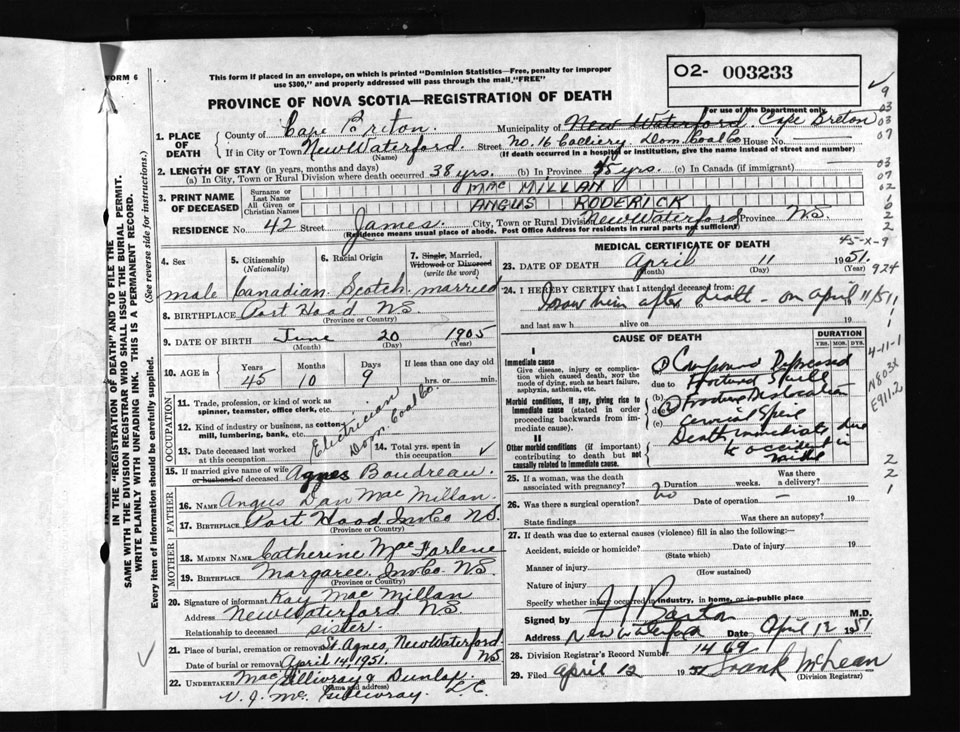 FORM 6
This form if placed in an envelope, on which is printed "Dominion Statistics—Free, penalty for improper
use $300," and properly addressed will pass through the mail "FREE"
02- 003233
For use of the Department only.
PROVINCE OF NOVA SCOTIA—REGISTRATION OF DEATH
IN THE "REGISTRATION OF DEATH" AND TO FILE THE
SAME WITH THE DIVISION REGISTRAR WHO SHALL ISSUE THE BURIAL PERMIT.
WRITE PLAINLY WITH UNFADING INK. THIS IS A PERMANENT RECORD.
Every item of information should be carefully supplied. (See reverse side for instructions.)
1. PLACE OF DEATH
County of Cape Breton. Municipality of New Waterford. Cape Breton
If in City or Town New Waterford Street No. 16 Colliery Dom Coal Co House No.
(Name) (If death occurred in a hospital or institution, give the name instead of street and number)
2. LENGTH OF STAY (in years, months and days)
(a) In City, Town or Rural Division where death occurred 38 yrs. (b) In Province 45 yrs. (c) In Canada (if immigrant)
3. PRINT NAME OF DECEASED
Surname or Last Name MAC MILLAN
All Given or Christian Names ANGUS RODERICK
RESIDENCE No. 42 Street James City, Town or Rural Division New Waterford Province N.S.
(Residence means usual place of abode. Post Office Address for residents in rural parts not sufficient)
4. Sex
5. Citizenship (Nationality)
6. Racial Origin
7. Single, Married, Widowed or Divorced (write the word)
male Canadian Scotch married
8. BIRTHPLACE Port Hood N.S.
(Province or Country)
9. DATE OF BIRTH June 20 1905
(Month) (Day) (Year)
10. AGE in Years Months Days If less than one day old
45 10 9 hrs. or min.
OCCUPATION
11. Trade, profession, or kind of work as
spinner, teamster, office clerk, etc. Electrician
12. Kind of industry or business, as cotton
mill, lumbering, bank, etc. Dom. Coal Co.
13. Date deceased last worked
at this occupation
14. Total yrs. spent in
this occupation
15. If married give name of wife
or husband of deceased Agnes Boudreau.
FATHER
16. NAME Angus Dan Mac Millan.
17. BIRTHPLACE Port Hood Inv. Co. N.S.
(Province or Country)
MOTHER
18. MAIDEN NAME Catherine Mac Farlene
19. BIRTHPLACE Margaree. Inv. Co. N.S.
(Province or Country)
20. Signature of informant Kay Mac Millan
Address New Waterford N.S
Relationship to deceased sister.
21. Place of burial, cremation or removal St. Agnes, New Waterford N.S
Date of burial or removal April 14, 1951.
22. UNDERTAKER Mac Gillivray & Dunlap.
(Name and address)
V. J. Mc. Gillivray. L.C.
MEDICAL CERTIFICATE OF DEATH
23. DATE OF DEATH April 11 1951.
(Month) (Day) (Year)
24. I HEREBY CERTIFY that I attended deceased from:
I saw him after death - on April 11/51
and last saw h alive on 19
CAUSE OF DEATH
DURATION
YRS. MOS. DYS.
I
Immediate cause
Give disease, injury or complication which caused death, not the mode of dying, such as heart failure, asphyxia, asthenia, etc.
Morbid conditions, if any, giving rise to immediate cause (stated in order proceeding backwards from immediate cause).
II
Other morbid conditions (if important) contributing to death but not causally related to immediate cause.
(a) Compound Depressed
due to Fractured Skull
(b) Fracture Dislocation
(c) Cervical Spine
Death immediate due
to accident in
mine
25. If a woman, was the death associated with pregnancy? Duration weeks. Was there a delivery?
26. Was there a surgical operation? No Date of operation —
State findings Was there an autopsy?
27. If death was due to external causes (violence) fill in also the following:—
Accident, suicide or homicide? Date of injury 19
(State which)
Manner of injury
(How sustained)
Nature of injury
Specify whether injury occurred in industry, in home, or in public place
Signed by Barton M.D.
Address New Waterford Date April 12 1951
28. Division Registrar's Record Number 1469
29. Filed April 12 1951 Frank McLean
(Division Registrar)
9
03
03
07
03
07
02
6
2
2
2
45-X-9
924
1
1
4-11-1
N803X
E911.2
2
2
1